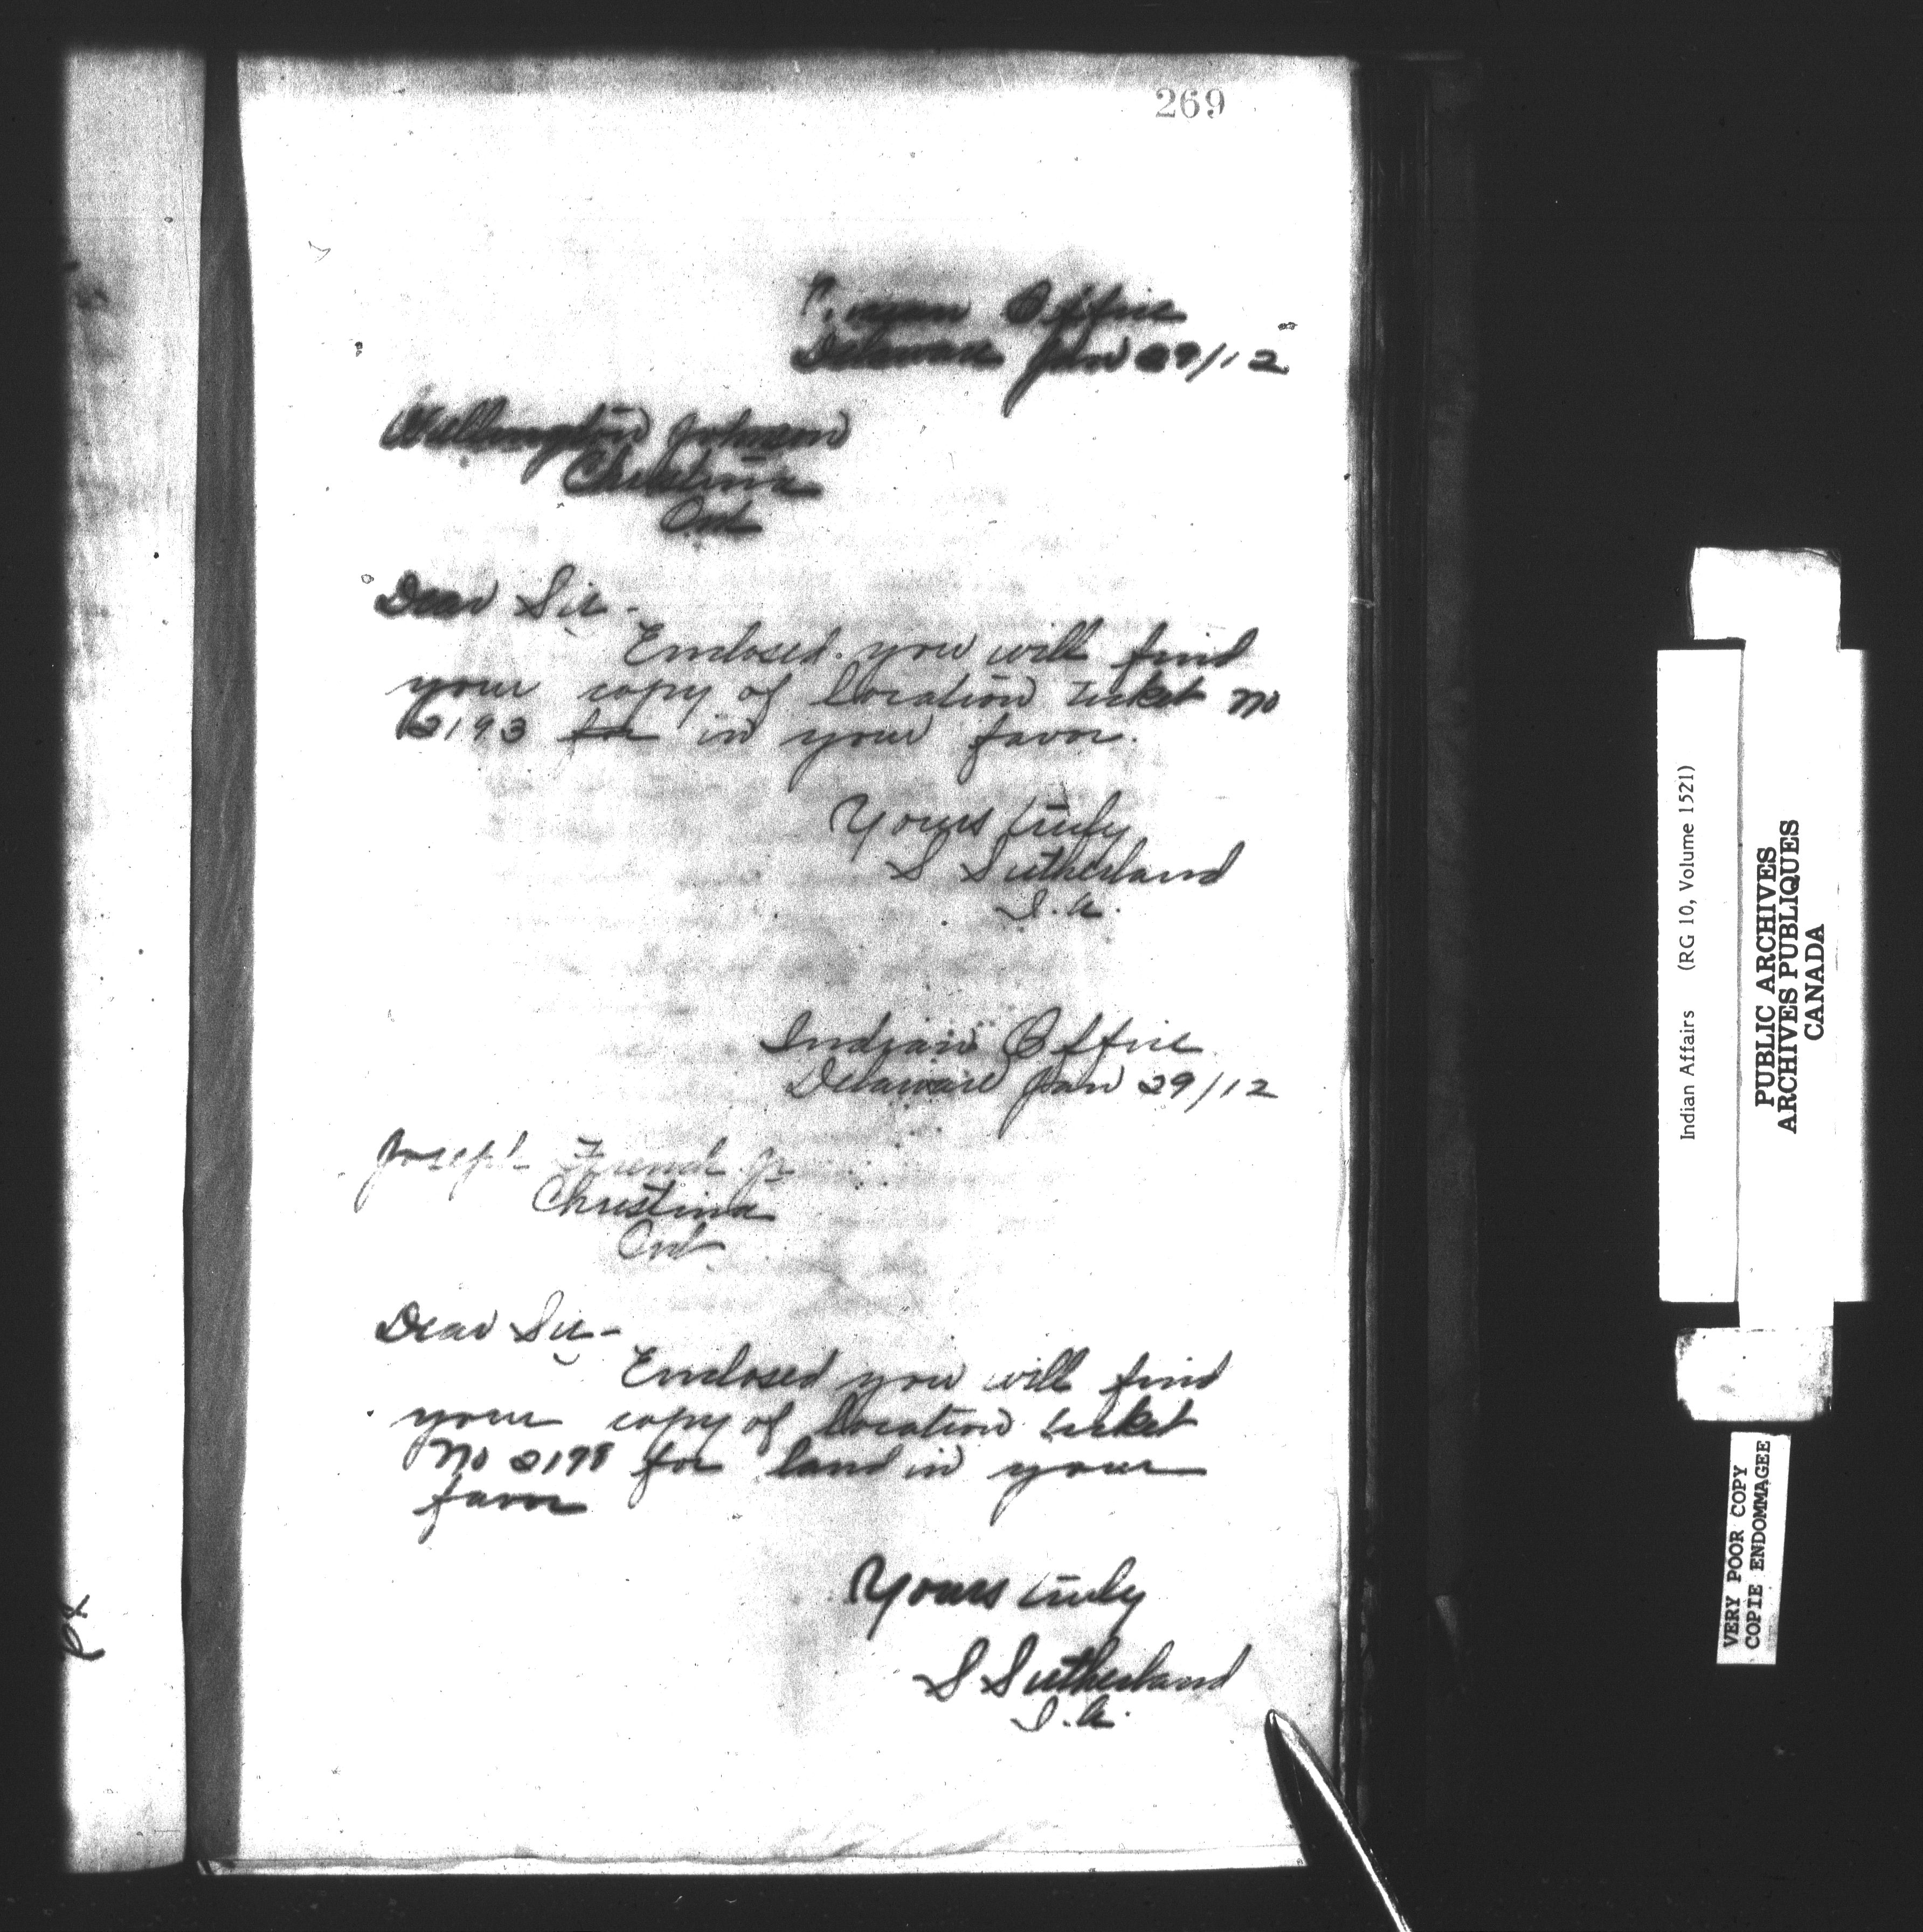 269
Indian Office
Delaware Jan 29/12
Wellington Johnson
Christina
Ont
Dear Sir-
Enclosed you will find
your copy of location ticket No
2193 for in your favor.
Yours truly
S Sutherland
I.A.
Indian Office
Delaware Jan 29/12
Joseph French Jr
Christina
Ont
Dear Sir-
Enclosed you will find
your copy of location ticket
No 2198 for land in your
favor
Yours truly
S Sutherland
I.A.
Indian Affairs (RG 10, Volume 1521)
PUBLIC ARCHIVES
ARCHIVES PUBLIQUES
CANADA
VERY POOR COPY
COPIE ENDOMMAGEE